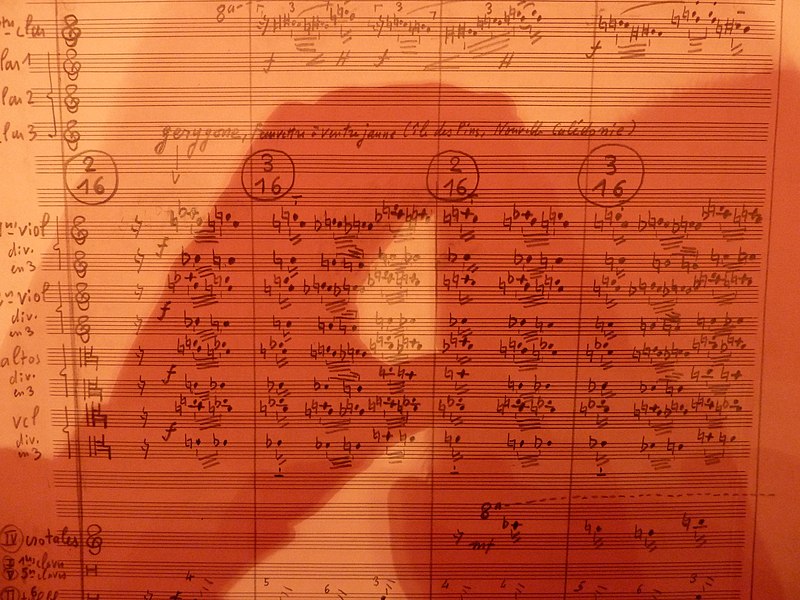 clar
8ª
3 3 3
f f f
clar 1
clar 2
clar 3
gerygone, fauvette à ventre jaune (île des Pins, Nouvelle Calédonie)
2 3 2 3
16 16 16 16
1ers viol
div.
en 3
f
viol
div.
en 3
f
altos
div.
en 3
f
vcl
div.
en 3
f
8ª
IV crotales
mf
4 5 6 3 4 4 5 6 3